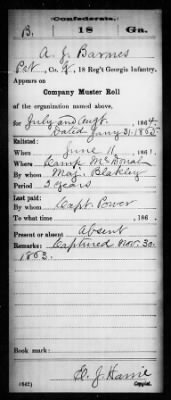 Confederate.
B, 18 Ga.
A. J. Barnes
Pvt, Co. K, 18 Reg't Georgia Infantry.
Appears on
Company Muster Roll
of the organization named above,
for July and Augt. , 1864
Dated Jany 31, 1865
Enlisted:
When June 11 , 1861
Where Camp McDonald
By whom Maj. Blakley
Period 3 years
Last paid:
By whom Capt Power
To what time , 186 .
Present or absent Absent
Remarks: Captured Nov. 30
1863.
Book mark:
(642)
Copyist.